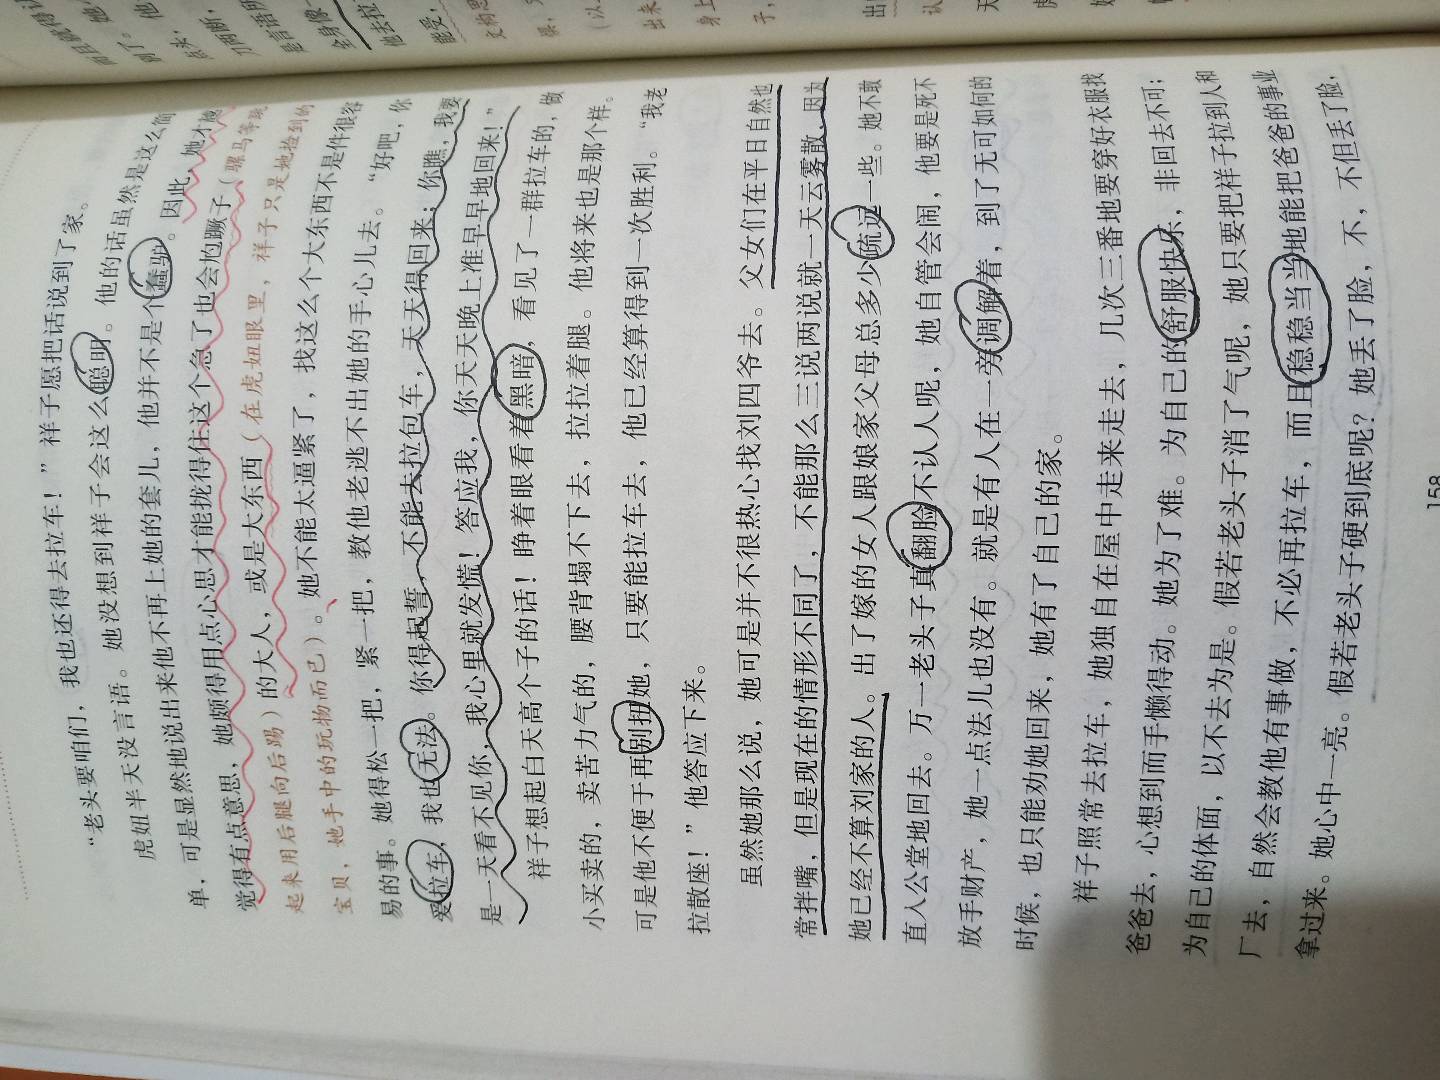 “老头要咱们，我也还得去拉车！”祥子愿把话说到了家。
虎妞半天没言语。她没想到祥子会这么聪明。他的话虽然是这么简
单，可是显然地说出来他不再上她的套儿，他并不是个蠢驴。因此，她才越
觉得有点意思，她颇得用点心思才能拢得住这个急了也会尥蹶子（骡马等跳
起来用后腿向后踢）的大人，或是大东西（在虎妞眼里，祥子只是她捡到的
宝贝，她手中的玩物而已）。她不能太逼紧了，找这么个大东西不是件很容
易的事。她得松一把，紧一把，教他老逃不出她的手心儿去。“好吧，你
爱拉车，我也无法。你得起誓，不能去拉包车，天天得回来；你瞧，我要
是一天看不见你，我心里就发慌！答应我，你天天晚上准早早地回来！”
祥子想起白天高个子的话！睁着眼看着黑暗，看见了一群拉车的，做
小买卖的，卖苦力气的，腰背塌不下去，拉拉着腿。他将来也是那个样。
可是他不便于再别扭她，只要能拉车去，他已经算得到一次胜利。“我老
拉散座！”他答应下来。
虽然她那么说，她可是并不很热心找刘四爷去。父女们在平日自然也
常拌嘴，但是现在的情形不同了，不能那么三说两说就一天云雾散，因为
她已经不算刘家的人。出了嫁的女人跟娘家父母总多少疏远一些。她不敢
直入公堂地回去。万一老头子真翻脸不认人呢，她自管会闹，他要是死不
放手财产，她一点法儿也没有。就是有人在一旁调解着，到了无可如何的
时候，也只能劝她回来，她有了自己的家。
祥子照常去拉车，她独自在屋中走来走去，几次三番地要穿好衣服找
爸爸去，心想到而手懒得动。她为了难。为自己的舒服快乐，非回去不可；
为自己的体面，以不去为是。假若老头子消了气呢，她只要把祥子拉到人和
厂去，自然会教他有事做，不必再拉车，而且稳稳当当地能把爸爸的事业
拿过来。她心中一亮。假若老头子硬到底呢？她丢了脸，不，不但丢了脸，
158